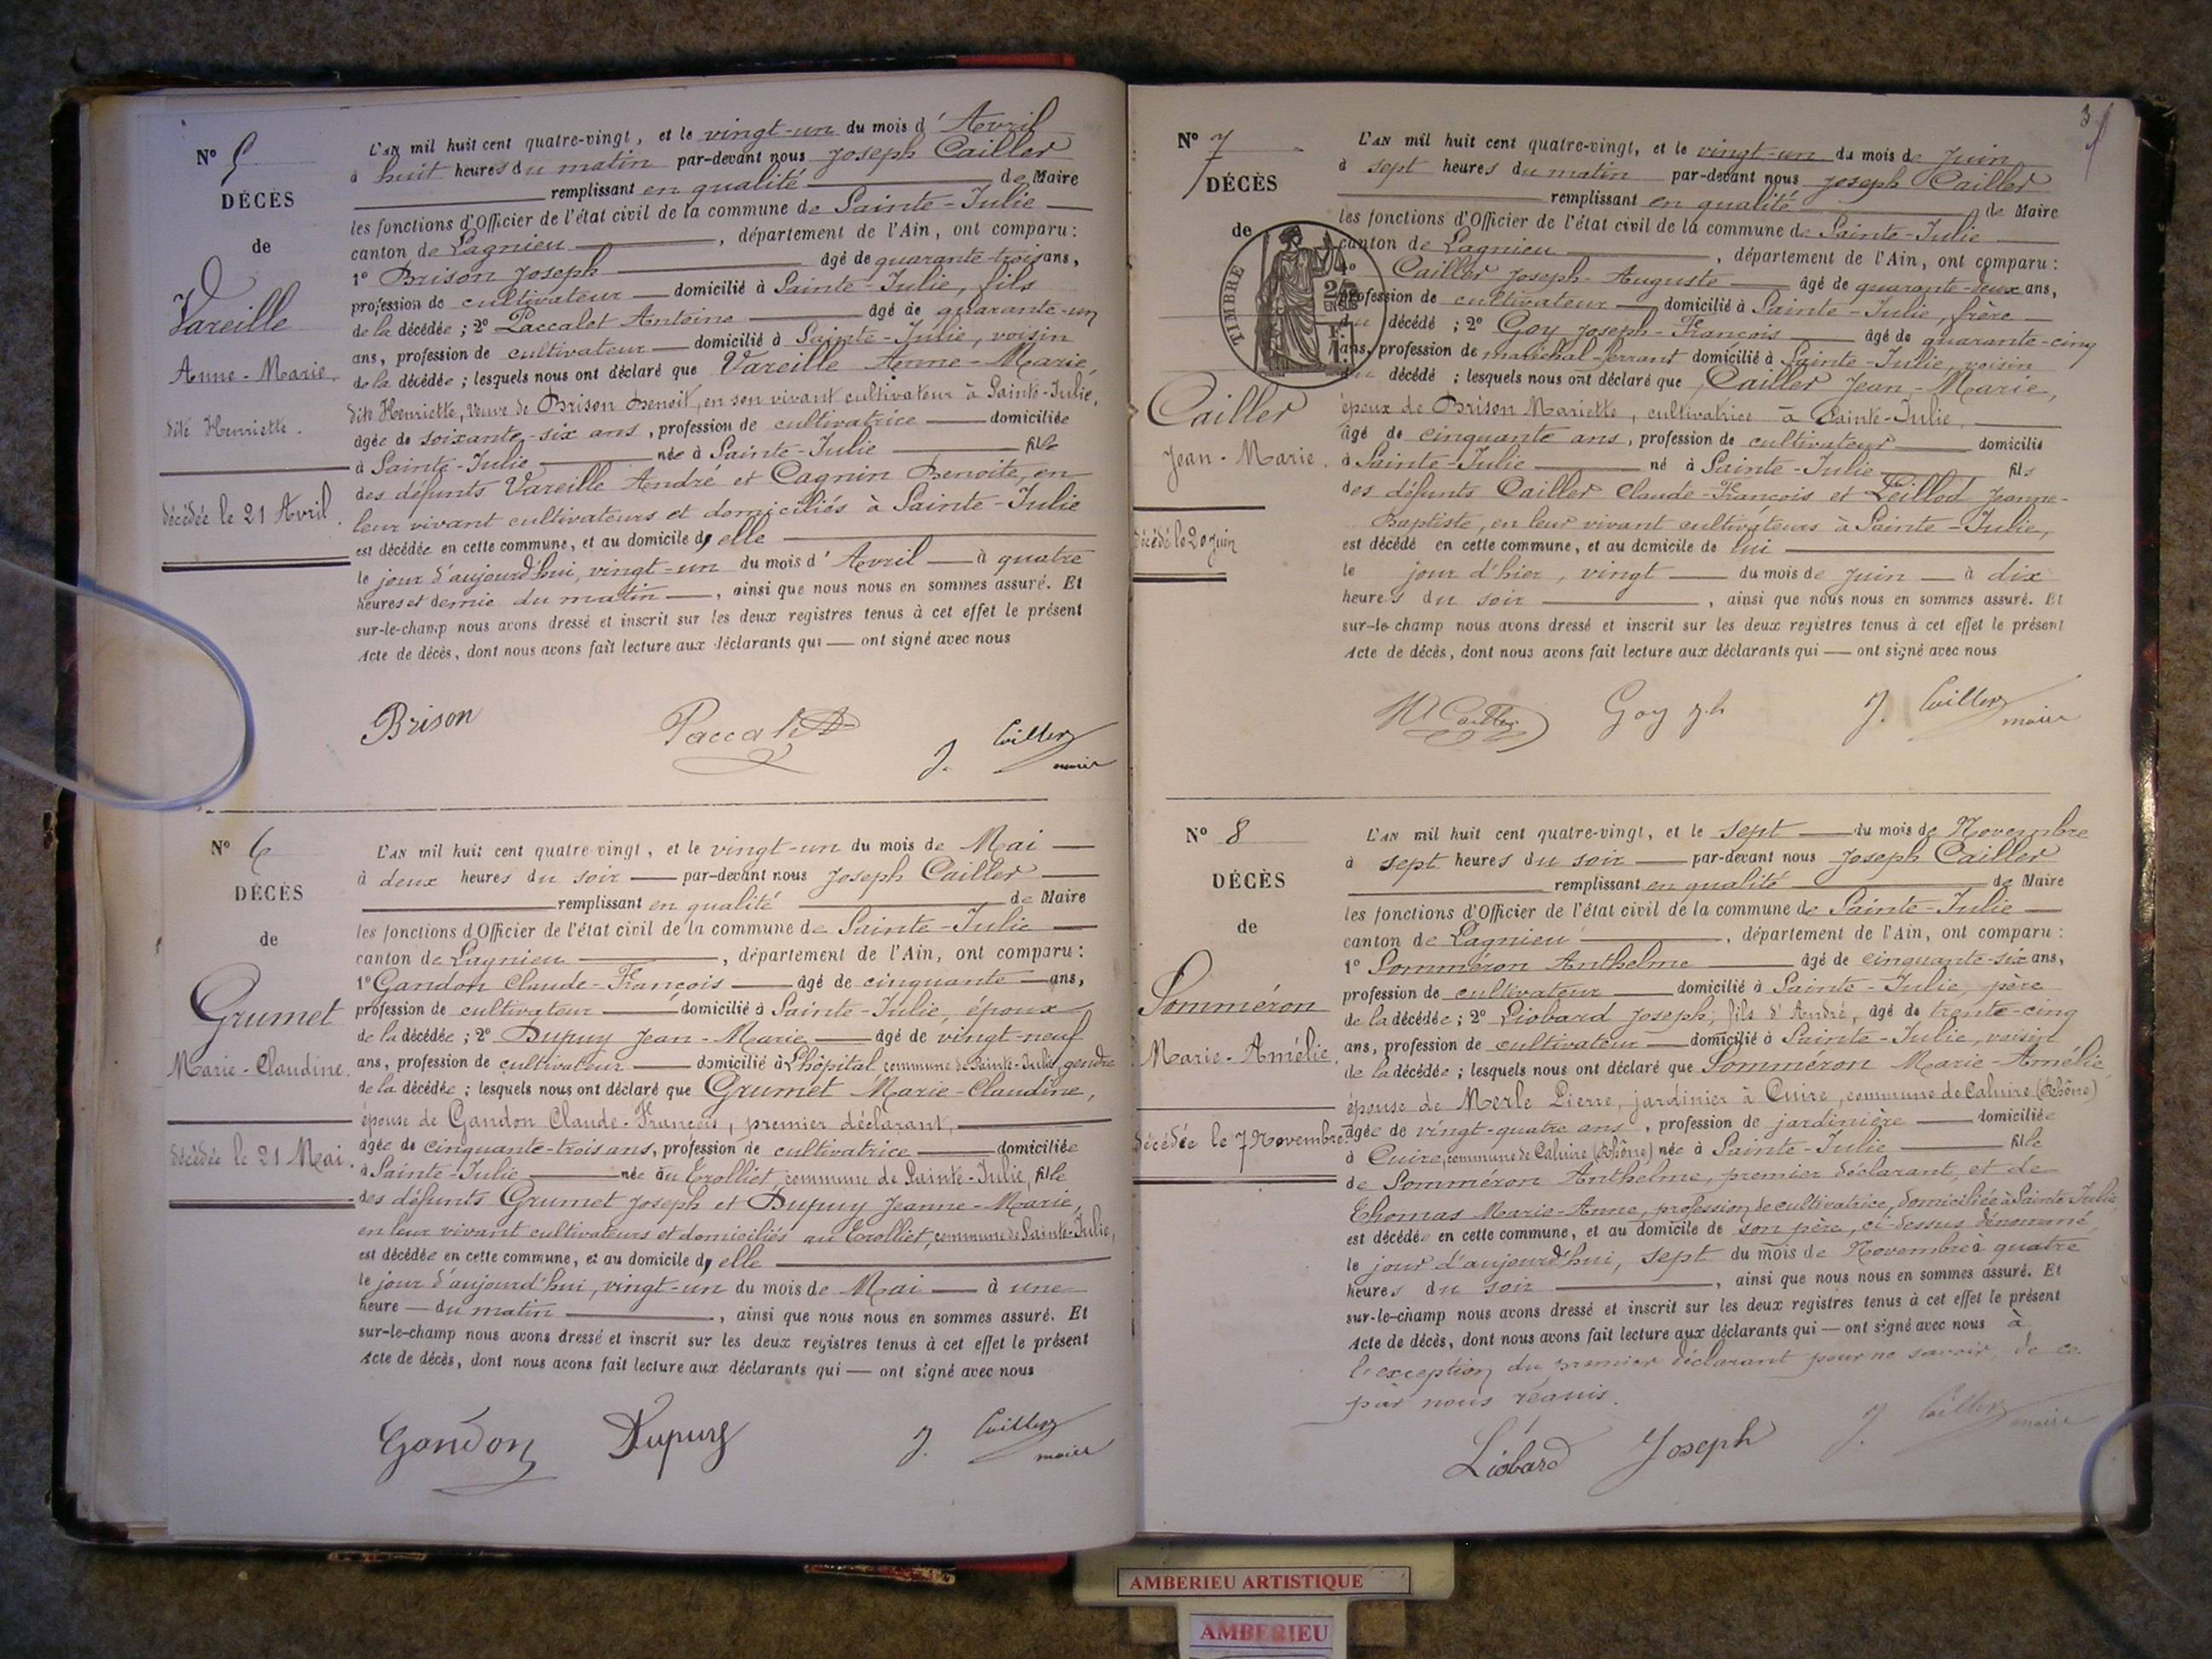 N° 5
DÉCÈS
de
Vareille
Anne-Marie
dite Henriette.
décédée le 21 Avril.
L'AN mil huit cent quatre-vingt, et le vingt-un du mois d'Avril
à huit heures du matin par-devant nous Joseph Cailler
remplissant en qualité de Maire
les fonctions d'Officier de l'état civil de la commune de Sainte-Julie
canton de Lagnieu, département de l'Ain, ont comparu :
1° Brison Joseph âgé de quarante-trois ans,
profession de cultivateur domicilié à Sainte-Julie, fils
de la décédée ; 2° Paccalet Antoine âgé de quarante-un
ans, profession de cultivateur domicilié à Sainte-Julie, voisin
de la décédée ; lesquels nous ont déclaré que Vareille Anne-Marie,
dite Henriette, veuve de Brison Benoit, en son vivant cultivateur à Sainte-Julie,
âgée de soixante-six ans, profession de cultivatrice domiciliée
à Sainte-Julie née à Sainte-Julie fille
des défunts Vareille André et Cagnin Benoite, en
leur vivant cultivateurs et domiciliés à Sainte-Julie
est décédée en cette commune, et au domicile d'elle
le jour d'aujourd'hui, vingt-un du mois d'Avril à quatre
heures et demie du matin, ainsi que nous nous en sommes assuré. Et
sur-le-champ nous avons dressé et inscrit sur les deux registres tenus à cet effet le présent
Acte de décès, dont nous avons fait lecture aux déclarants qui ont signé avec nous
Brison Paccalet J. Cailler maire
N° 6
DÉCÈS
de
Grumet
Marie-Claudine.
décédée le 21 Mai.
L'AN mil huit cent quatre-vingt, et le vingt-un du mois de Mai
à deux heures du soir par-devant nous Joseph Cailler
remplissant en qualité de Maire
les fonctions d'Officier de l'état civil de la commune de Sainte-Julie
canton de Lagnieu, département de l'Ain, ont comparu :
1° Gandon Claude-François âgé de cinquante ans,
profession de cultivateur domicilié à Sainte-Julie, époux
de la décédée ; 2° Dupuy Jean-Marie âgé de vingt-neuf
ans, profession de cultivateur domicilié à L'hôpital, commune de Sainte-Julie, gendre
de la décédée ; lesquels nous ont déclaré que Grumet Marie-Claudine,
épouse de Gandon Claude-François, premier déclarant,
âgée de cinquante-trois ans, profession de cultivatrice domiciliée
à Sainte-Julie née au Trolliet, commune de Sainte-Julie, fille
des défunts Grumet Joseph et Dupuy Jeanne-Marie,
en leur vivant cultivateurs et domiciliés au Trolliet, commune de Sainte-Julie,
est décédée en cette commune, et au domicile d'elle
le jour d'aujourd'hui, vingt-un du mois de Mai à une
heure du matin, ainsi que nous nous en sommes assuré. Et
sur-le-champ nous avons dressé et inscrit sur les deux registres tenus à cet effet le présent
Acte de décès, dont nous avons fait lecture aux déclarants qui ont signé avec nous
Gandon Dupuy J. Cailler maire
3
N° 7
DÉCÈS
de
TIMBRE
Cailler
Jean-Marie.
décédé le 20 Juin
L'AN mil huit cent quatre-vingt, et le vingt-un du mois de Juin
à sept heures du matin par-devant nous Joseph Cailler
remplissant en qualité de Maire
les fonctions d'Officier de l'état civil de la commune de Sainte-Julie
canton de Lagnieu, département de l'Ain, ont comparu :
1° Cailler Joseph-Auguste âgé de quarante-deux ans,
profession de cultivateur domicilié à Sainte-Julie, frère
du décédé ; 2° Goy Joseph-François âgé de quarante-cinq
ans, profession de maréchal-ferrant domicilié à Sainte-Julie, voisin
du décédé ; lesquels nous ont déclaré que Cailler Jean-Marie,
époux de Brison Mariette, cultivatrice à Sainte-Julie,
âgé de cinquante ans, profession de cultivateur domicilié
à Sainte-Julie né à Sainte-Julie fils
des défunts Cailler Claude-François et Teillod Jeanne-
Baptiste, en leur vivant cultivateurs à Sainte-Julie,
est décédé en cette commune, et au domicile de lui
le jour d'hier, vingt du mois de Juin à dix
heures du soir, ainsi que nous nous en sommes assuré. Et
sur-le-champ nous avons dressé et inscrit sur les deux registres tenus à cet effet le présent
Acte de décès, dont nous avons fait lecture aux déclarants qui ont signé avec nous
Goy J. Cailler maire
N° 8
DÉCÈS
de
Somméron
Marie-Amélie.
décédée le 7 Novembre.
L'AN mil huit cent quatre-vingt, et le sept du mois de Novembre
à sept heures du soir par-devant nous Joseph Cailler
remplissant en qualité de Maire
les fonctions d'Officier de l'état civil de la commune de Sainte-Julie
canton de Lagnieu, département de l'Ain, ont comparu :
1° Somméron Anthelme âgé de cinquante-six ans,
profession de cultivateur domicilié à Sainte-Julie, père
de la décédée ; 2° Liobard Joseph, fils d'André, âgé de trente-cinq
ans, profession de cultivateur domicilié à Sainte-Julie, voisin
de la décédée ; lesquels nous ont déclaré que Somméron Marie-Amélie
épouse de Merle Pierre, jardinier à Cuire, commune de Caluire (Rhône)
âgée de vingt-quatre ans, profession de jardinière domiciliée
à Cuire, commune de Caluire (Rhône) née à Sainte-Julie fille
de Somméron Anthelme, premier déclarant, et de
Thomas Marie-Anne, profession de cultivatrice, domiciliée à Sainte-Julie
est décédée en cette commune, et au domicile de son père, ci-dessus dénommé,
le jour d'aujourd'hui, sept du mois de Novembre à quatre
heures du soir, ainsi que nous nous en sommes assuré. Et
sur-le-champ nous avons dressé et inscrit sur les deux registres tenus à cet effet le présent
Acte de décès, dont nous avons fait lecture aux déclarants qui ont signé avec nous à
l'exception du premier déclarant pour ne savoir, de ce
par nous requis.
Liobard Joseph J. Cailler maire
AMBERIEU ARTISTIQUE
AMBERIEU